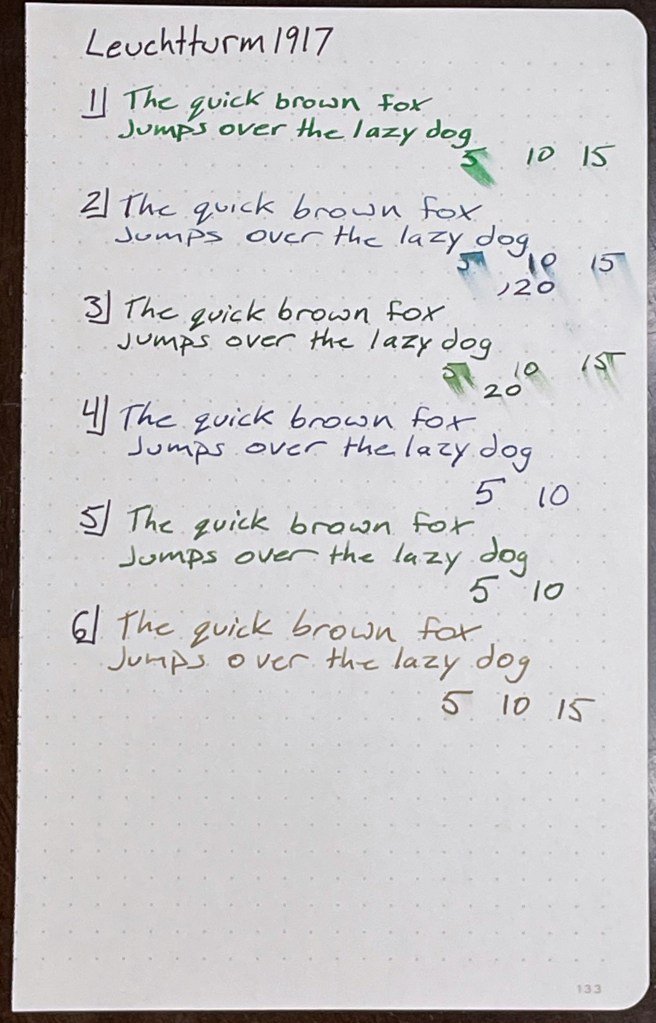 Leuchtturm1917
1) The quick brown fox
Jumps over the lazy dog
5 10 15
2) The quick brown fox
Jumps over the lazy dog
5 10 15
20
3) The quick brown fox
Jumps over the lazy dog
5 10 15
20
4) The quick brown fox
Jumps over the lazy dog
5 10
5) The quick brown fox
Jumps over the lazy dog
5 10
6) The quick brown fox
Jumps over the lazy dog
5 10 15
133